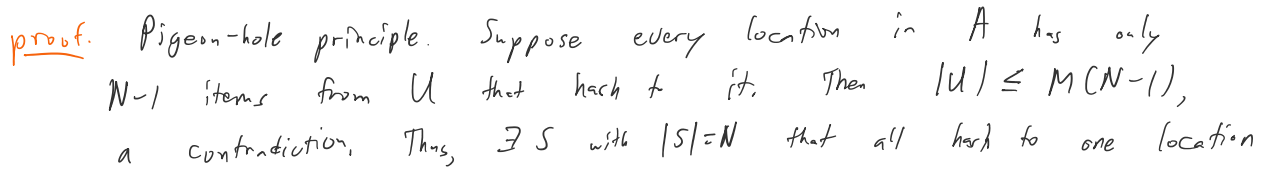 proof. Pigeon-hole principle. Suppose every location in A has only
N-1 items from U that hash to it. Then |U| ≤ M(N-1),
a contradiction. Thus, ∃ S with |S|=N that all hash to one location